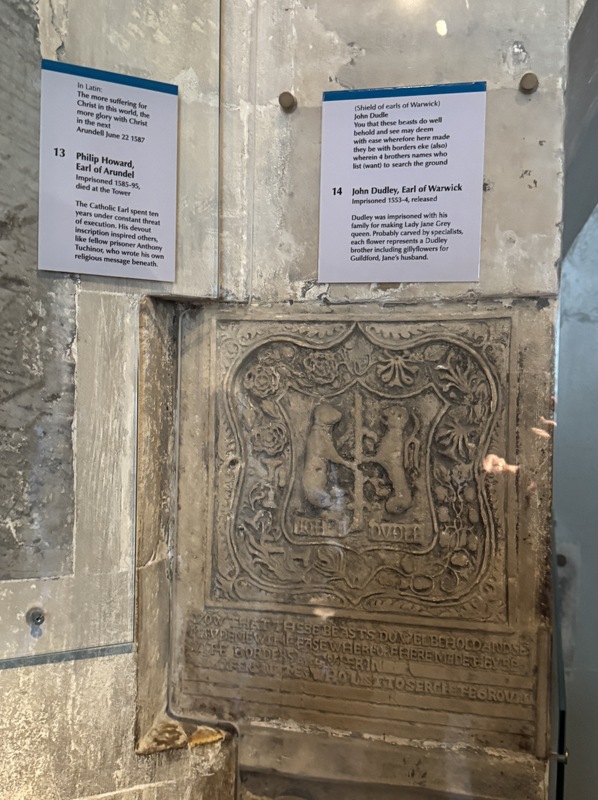 In Latin:
The more suffering for
Christ in this world, the
more glory with Christ
in the next
Arundell June 22 1587
13 Philip Howard,
Earl of Arundel
Imprisoned 1585–95,
died at the Tower
The Catholic Earl spent ten
years under constant threat
of execution. His devout
inscription inspired others,
like fellow prisoner Anthony
Tuchinor, who wrote his own
religious message beneath.
(Shield of earls of Warwick)
John Dudle
You that these beasts do well
behold and see may deem
with ease wherefore here made
they be with borders eke (also)
wherein 4 brothers names who
list (want) to search the ground
14 John Dudley, Earl of Warwick
Imprisoned 1553–4, released
Dudley was imprisoned with his
family for making Lady Jane Grey
queen. Probably carved by specialists,
each flower represents a Dudley
brother including gillyflowers for
Guildford, Jane's husband.
DVDLE
YOW THAT THESE BEASTS DO WEL BEHOLD AND SE
WITH EASE WHEREFORE HERE MADE THEY BE
BORDERS
LIST TO SERCHE THE GROVND